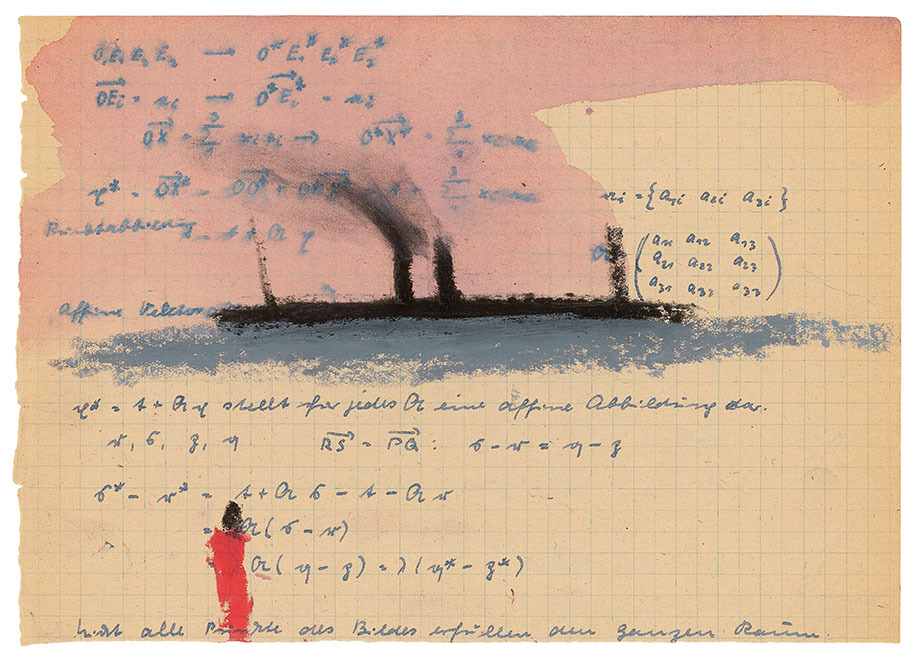 O E₁ E₂ E₃ → O* E₁* E₂* E₃*
OE⃗ᵢ = nᵢ → O*E⃗ᵢ* = nᵢ
OX⃗ = Σ → O*X⃗* = Σ
𝔵* = OX⃗* = OO⃗* +
𝔞ᵢ = {a₁ᵢ a₂ᵢ a₃ᵢ}
Punktabbildung 𝔵* = t + 𝔄 𝔵
(a₁₁ a₁₂ a₁₃
a₂₁ a₂₂ a₂₃
a₃₁ a₃₂ a₃₃)
affine Vektor
𝔵* = t + 𝔄 𝔵 stellt für jedes 𝔄 eine affine Abbildung dar.
𝔯, 𝔰, 𝔭, 𝔮 RS⃗ = PQ⃗ : 𝔰 - 𝔯 = 𝔮 - 𝔭
𝔰* - 𝔯* = t + 𝔄 𝔰 - t - 𝔄 𝔯
= 𝔄 (𝔰 - 𝔯)
𝔄 (𝔮 - 𝔭) = λ (𝔮* - 𝔭*)
alle Punkte des Bildes erfüllen den ganzen Raum.